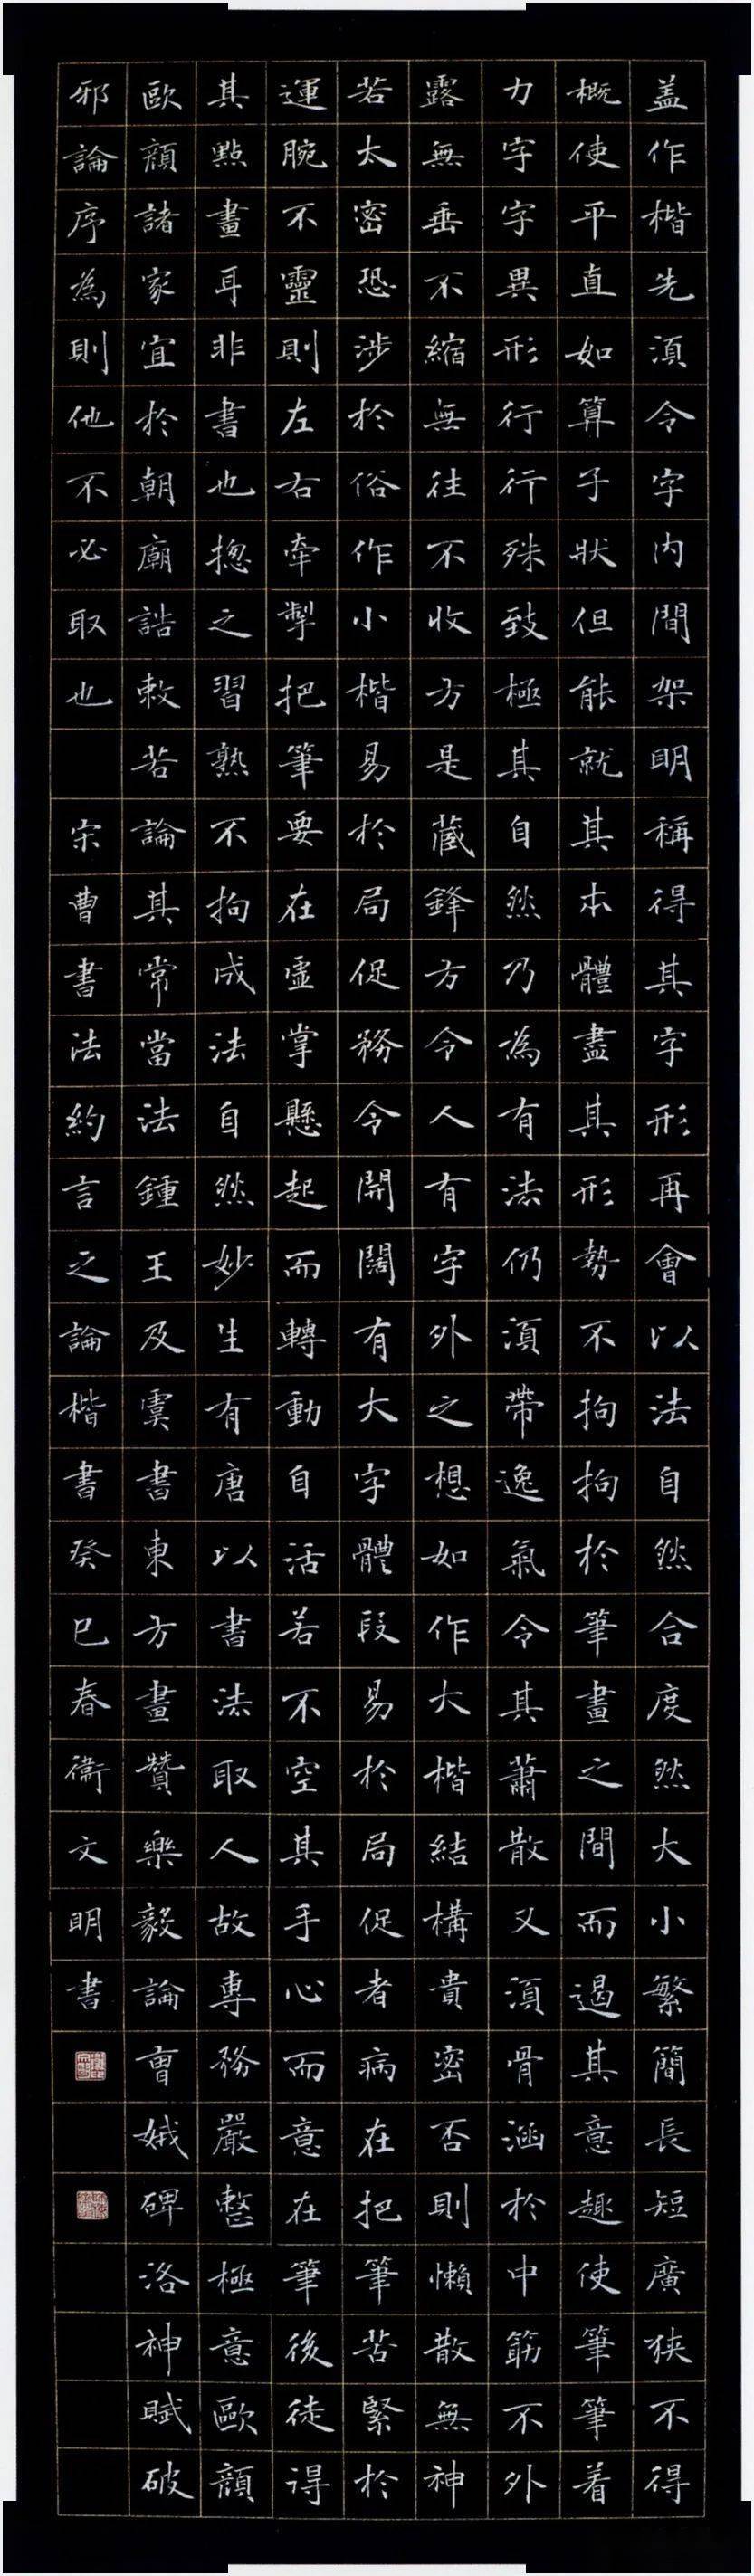 盖作楷先須令字内間架明稱得其字形再會以法自然合度然大小繁簡長短廣狹不得
概使平直如算子狀但能就其本體盡其形勢不拘拘於筆畫之間而遏其意趣使筆筆着
力字字異形行行殊致極其自然乃為有法仍須帶逸氣令其蕭散又須骨涵於中筋不外
露無垂不縮無往不收方是藏鋒方令人有字外之想如作大楷結構貴密否則懶散無神
若太密恐涉於俗作小楷易於局促務令開闊有大字體段易於局促者病在把筆苦緊於
運腕不靈則左右牽掣把筆要在虛掌懸起而轉動自活若不空其手心而意在筆後徒得
其點畫耳非書也揔之習熟不拘成法自然妙生有唐以書法取人故專務嚴整極意歐顔
歐顔諸家宜於朝廟誥敕若論其常當法鍾王及虞書東方畫贊樂毅論曹娥碑洛神賦破
邪論序為則他不必取也 宋曹書法約言之論楷書癸巳春衞文明書